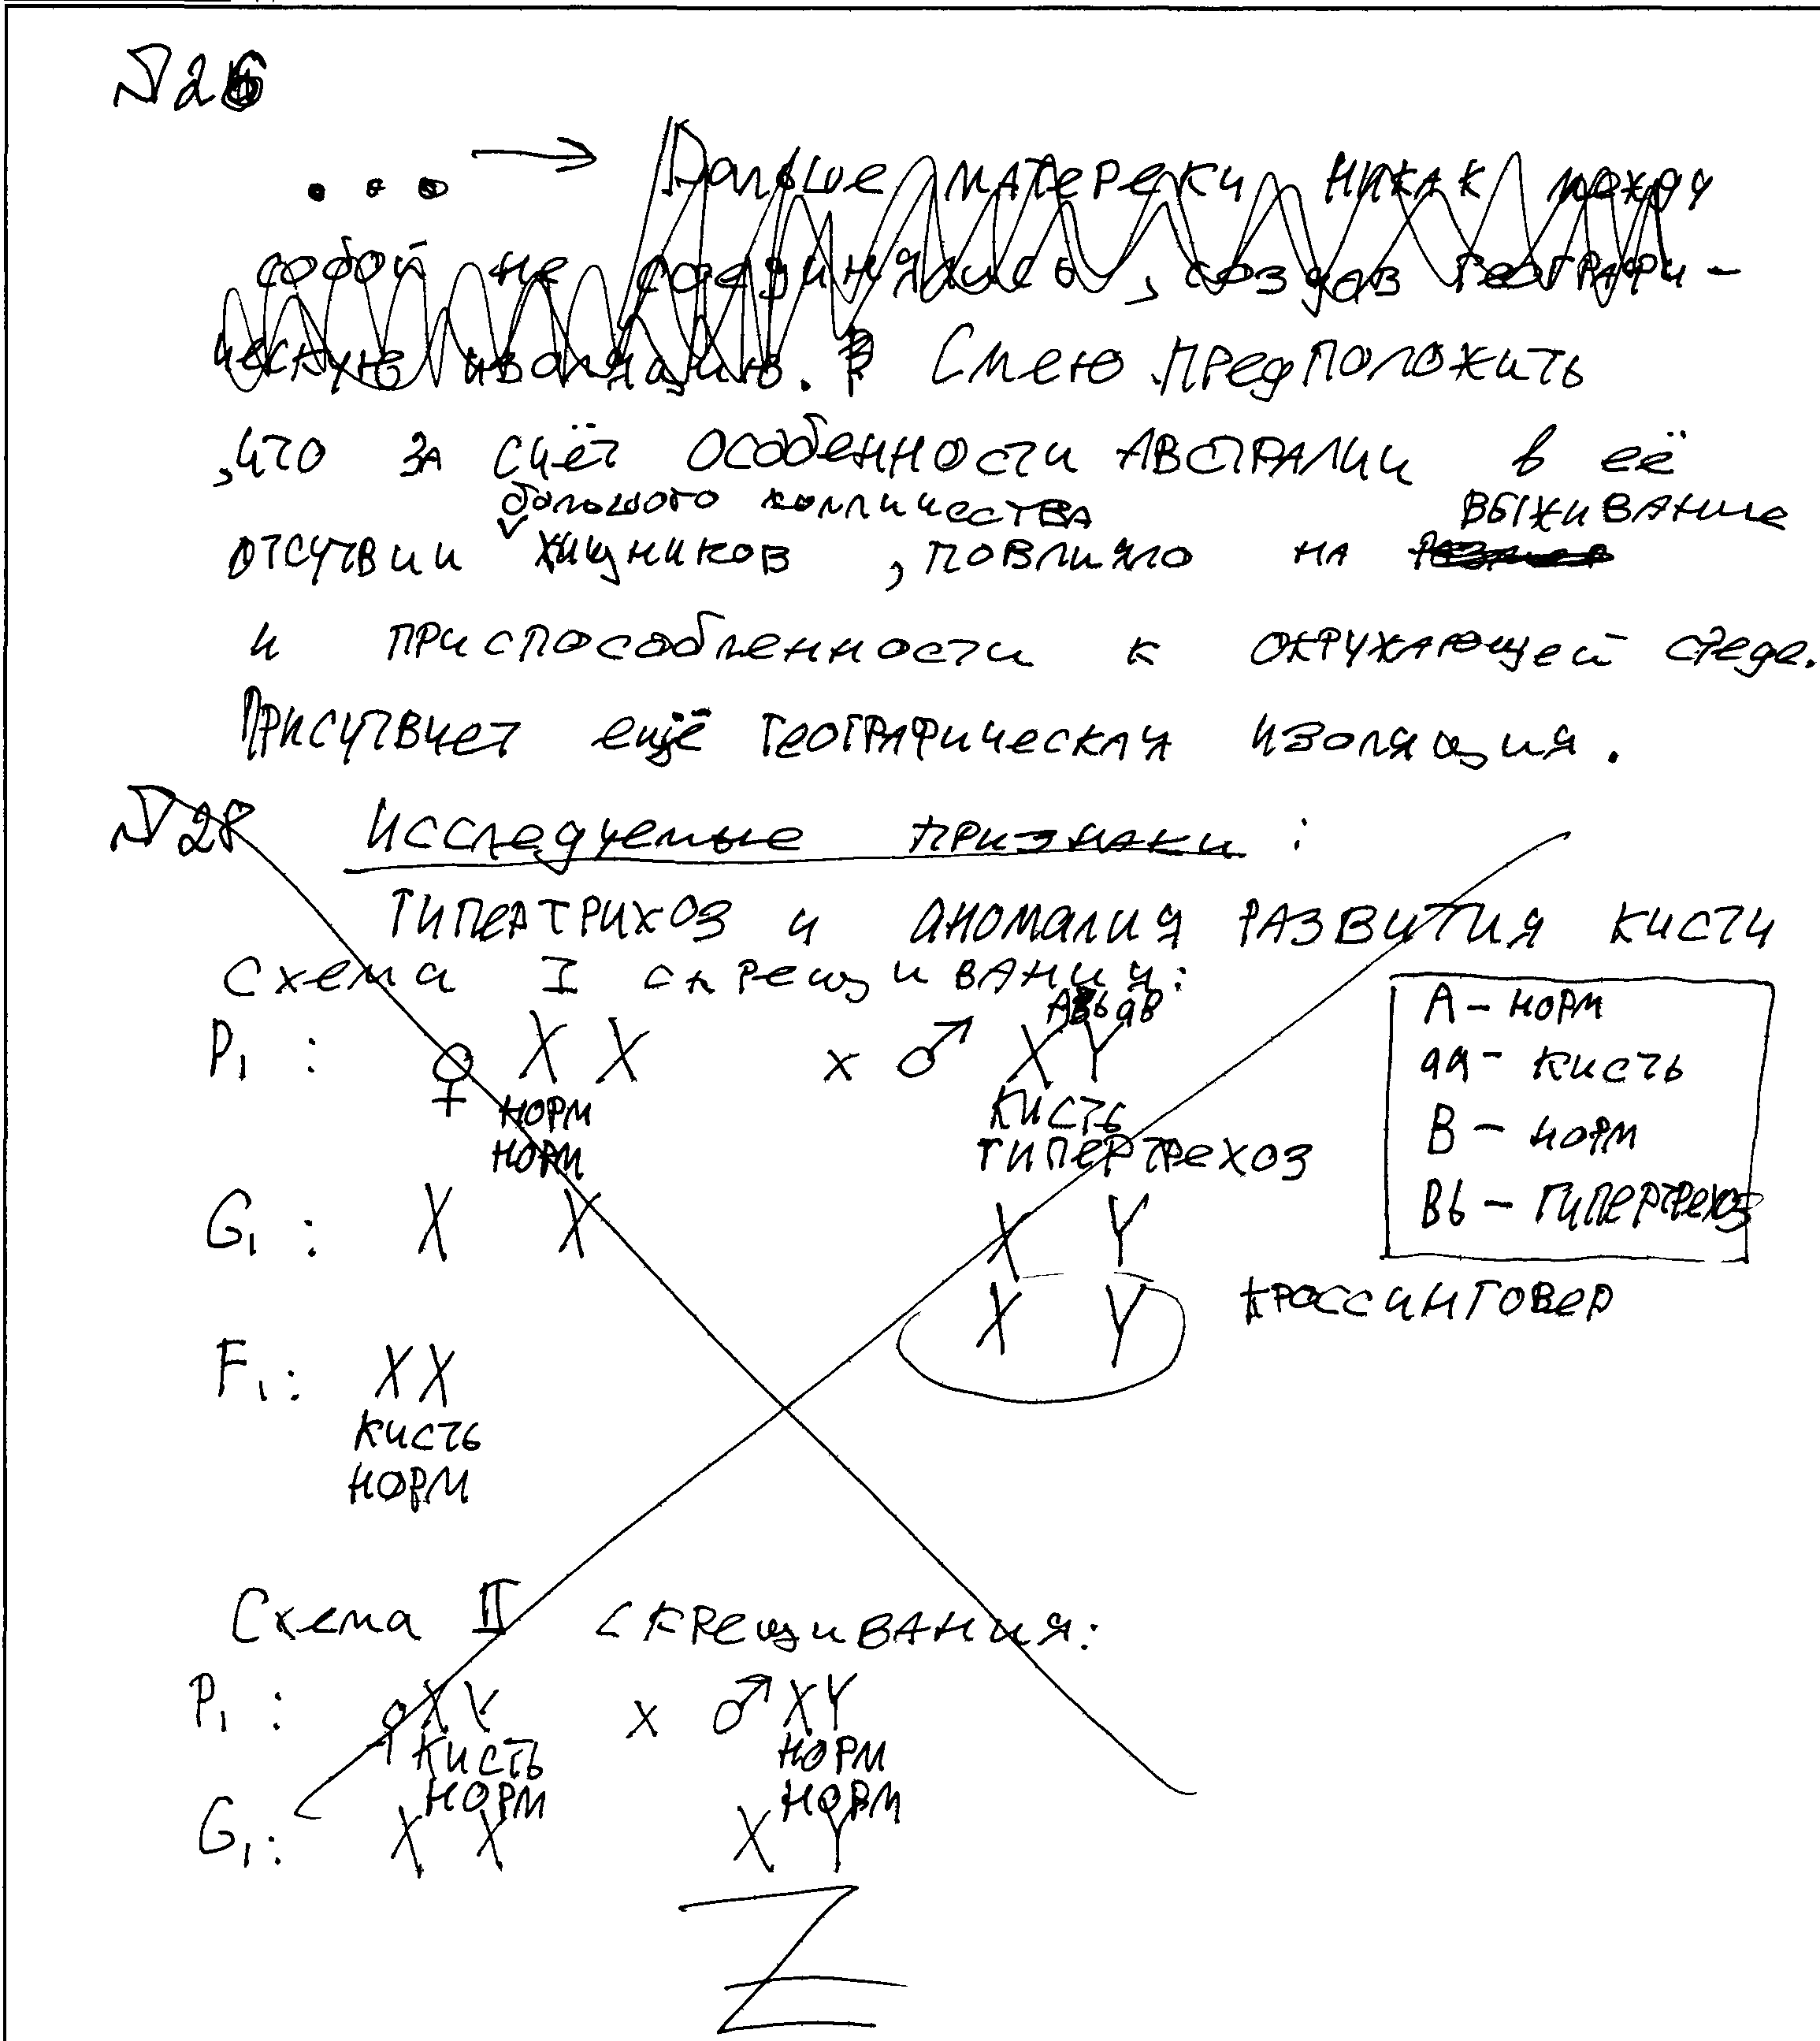 №26
... → Дальше матереки никак между
собой не соединялись, создав географи-
ческую изоляцию. Смею предположить
,что за счёт особенности Австралии в её
большого колличества выживание
отсутвии хищников, повлияло на
и приспособленности к окружающей среде.
Присутвиет ещё географическая изоляция.
№28 Исследуемые признаки:
гипертрихоз и аномалия развития кисти
Схема I скрещивания:
A - норм
P₁ : ♀ X X x ♂ X Y
аа - кисть
норм кисть
B - норм
норм гипертрехоз
Bb - гипертрехоз
G₁ : X X X Y
X Y кроссинговер
F₁: XX
кисть
норм
Схема II скрещивания:
P₁ : ♀ X X x ♂ XY
кисть норм
норм норм
G₁: X X X Y
Z